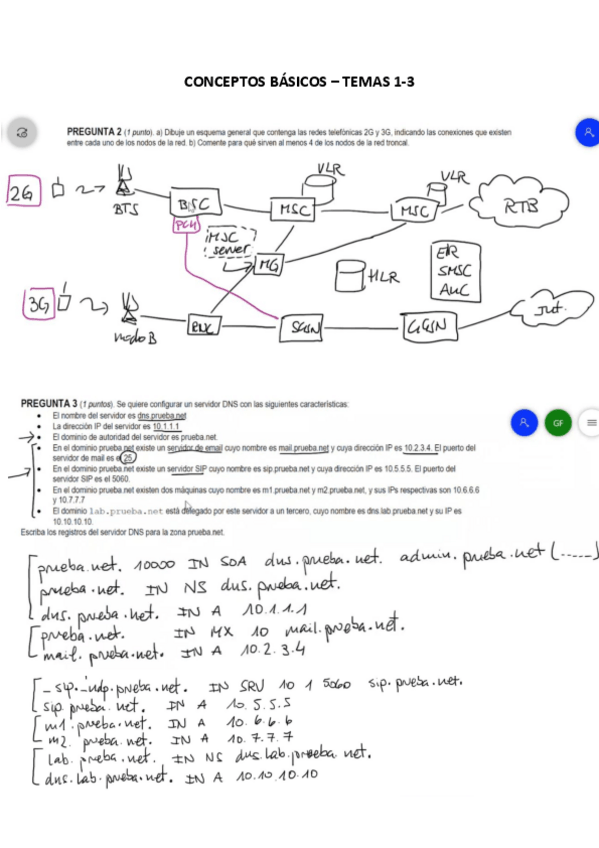 CONCEPTOS BÁSICOS – TEMAS 1-3
PREGUNTA 2 (1 punto). a) Dibuje un esquema general que contenga las redes telefónicas 2G y 3G, indicando las conexiones que existen
entre cada uno de los nodos de la red. b) Comente para qué sirven al menos 4 de los nodos de la red troncal.
2G
BTS
BSC
PCU
VLR
MSC
VLR
MSC
RTB
MSC
server
MG
HLR
EIR
SMSC
AUC
3G
nodo B
RNC
SGSN
GGSN
Int.
PREGUNTA 3 (1 puntos). Se quiere configurar un servidor DNS con las siguientes características:
GF
• El nombre del servidor es dns.prueba.net
• La dirección IP del servidor es 10.1.1.1
• El dominio de autoridad del servidor es prueba.net.
• En el dominio prueba.net existe un servidor de email cuyo nombre es mail.prueba.net y cuya dirección IP es 10.2.3.4. El puerto del
servidor de mail es el 25.
• En el dominio prueba.net existe un servidor SIP cuyo nombre es sip.prueba.net y cuya dirección IP es 10.5.5.5. El puerto del
servidor SIP es el 5060.
• En el dominio prueba.net existen dos máquinas cuyo nombre es m1.prueba.net y m2.prueba.net, y sus IPs respectivas son 10.6.6.6
y 10.7.7.7
• El dominio lab.prueba.net está delegado por este servidor a un tercero, cuyo nombre es dns.lab.prueba.net y su IP es
10.10.10.10.
Escriba los registros del servidor DNS para la zona prueba.net.
prueba.net. 10000 IN SOA dns.prueba.net. admin.prueba.net (.....)
prueba.net. IN NS dns.prueba.net.
dns.prueba.net. IN A 10.1.1.1
prueba.net. IN MX 10 mail.prueba.net.
mail.prueba.net. IN A 10.2.3.4
_sip._udp.prueba.net. IN SRV 10 1 5060 sip.prueba.net.
sip.prueba.net. IN A 10.5.5.5
m1.prueba.net. IN A 10.6.6.6
m2.prueba.net. IN A 10.7.7.7
lab.prueba.net. IN NS dns.lab.prueba.net.
dns.lab.prueba.net. IN A 10.10.10.10